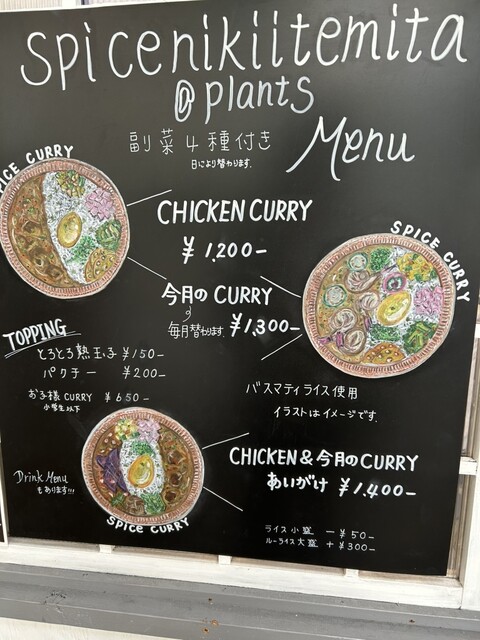 Spicenikiitemita
@plants
副菜4種付き
日により替わります.
Menu
SPICE CURRY
CHICKEN CURRY
¥1,200-
SPICE CURRY
今月のCURRY
毎月替わります. ¥1,300-
TOPPING
とろとろ熟玉子 ¥150-
パクチー ¥200-
お子様CURRY ¥650-
小学生以下
バスマティライス使用
イラストはイメージです.
CHICKEN&今月のCURRY
あいがけ ¥1,400-
Drink Menu
もあります!!!
SPICE CURRY
ライス小盛 -¥50-
ルーライス大盛 +¥300-